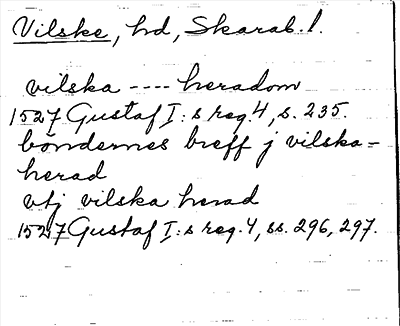 Vilske, hd, Skarab. l.
vilska ---- heradom
1527 Gustaf I:s reg. 4, s. 235.
böndernes breff j vilska-
herad
vtj vilska herad
1527 Gustaf I:s reg. 4, ss. 296, 297.